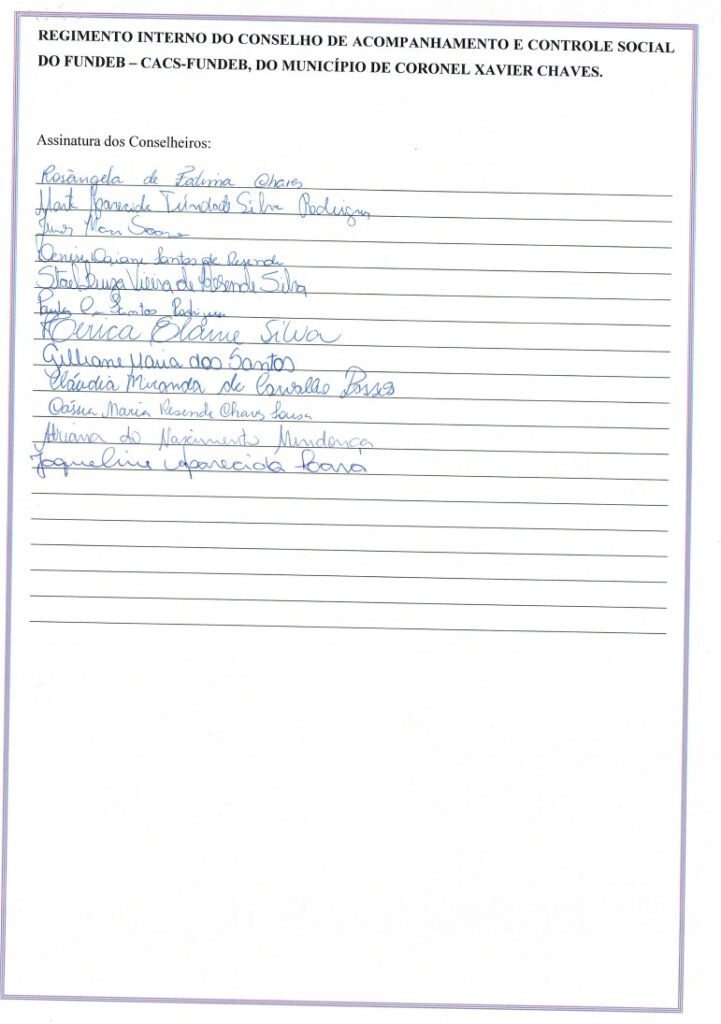 REGIMENTO INTERNO DO CONSELHO DE ACOMPANHAMENTO E CONTROLE SOCIAL
DO FUNDEB – CACS-FUNDEB, DO MUNICÍPIO DE CORONEL XAVIER CHAVES.
Assinatura dos Conselheiros:
Rosângela de Fatima Chaves
Aparecida Trindade Silva Rodrigues
Denise Daiane Santos de Resende
Vieira de Resende Silva
Santos Rodrigues
Elaine Silva
Gilliane Maria dos Santos
Cláudia Miranda de Carvalho Passos
Cássia Maria Resende Chaves Sousa
Adriana do Nascimento Mendonça
Jaqueline Aparecida